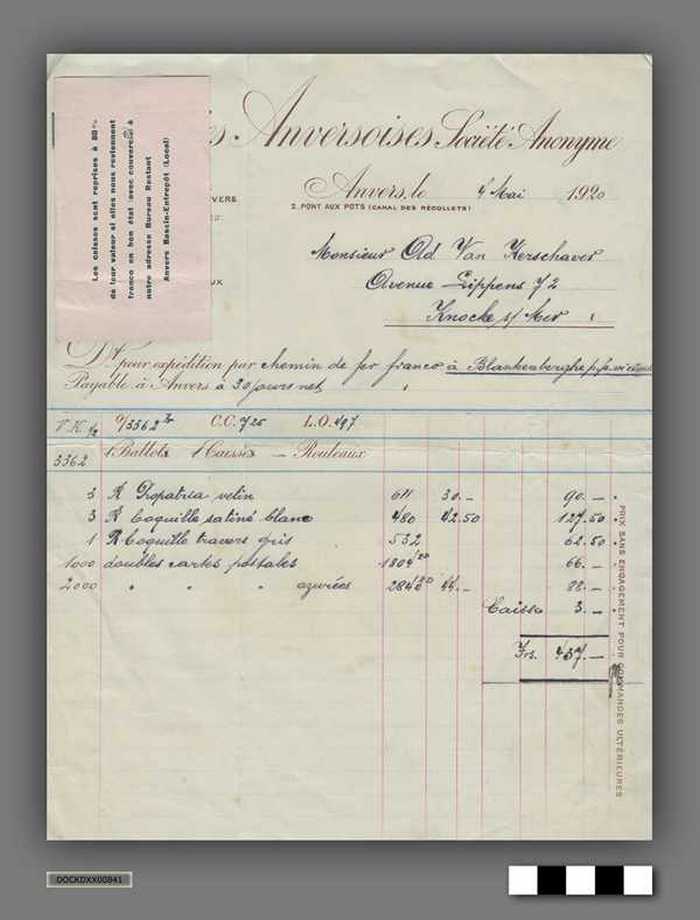 Les caisses sont reprises à 80%
de leur valeur si elles nous reviennent
franco en bon état (avec couvercle) à
notre adresse Bureau Restant
Anvers Bassin-Entrepôt (Local)
es Anversoises Société Anonyme
VERS
Anvers, le 4 Mai 1920
2. PONT AUX POTS (CANAL DES RÉCOLLETS)
UX
Monsieur Ad Van Kerschaver
Avenue Lippens 72
Knocke s/ Mer
Dt. pour expédition par chemin de fer franco à Blankenberghe
Payable à Anvers à 30 jours net
V.K. O/3362 C.C. 725 L.O. 497
3362 1 Ballots 1 Caisses — Rouleaux
3 R Propatria velin 611 30.- 90.-
3 R Coquille satiné blanc 480 42.50 127.50
1 R Coquille travers gris 532 62.50
1000 doubles cartes postales 66.-
2000 " " " azurées 44.- 88.-
Caisse 3.-
Frs. 437.-
PRIX SANS ENGAGEMENT POUR COMMANDES ULTÉRIEURES
DOCKDXX00841